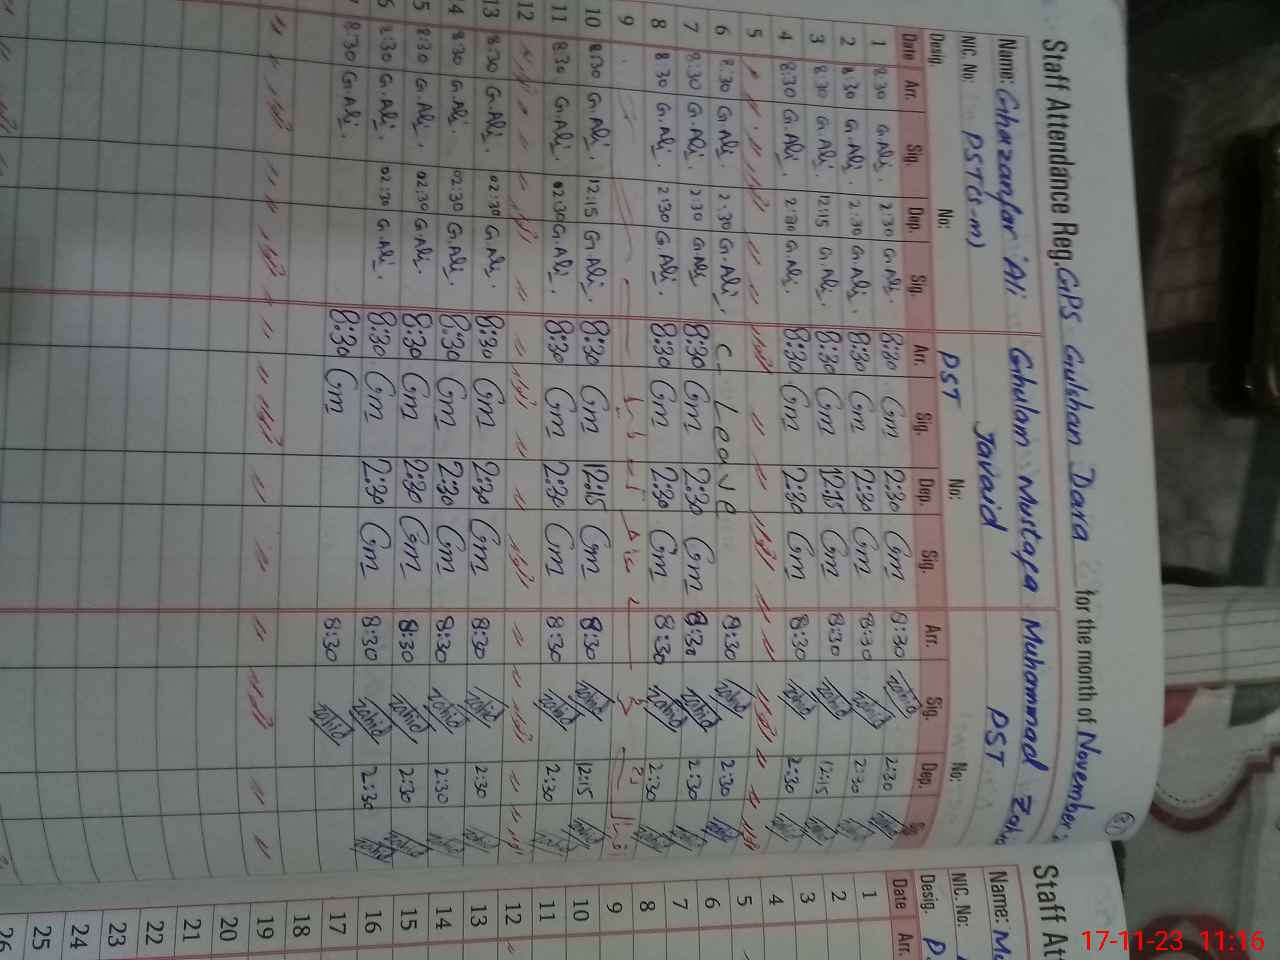 Staff Attendance Reg. GPS Gulshan Dara for the month of November
Name: Ghazanfar Ali Ghulam Mustafa Muhammad
Javaid
NIC. No: PST(S-m) PST
Desig. No: PST No: No:
Date Arr. Sig. Dep. Sig. Arr. Sig. Dep. Sig. Arr. Sig. Dep.
1 8:30 G.Ali. 2:30 G.Ali. 8:30 Gm 2:30 Gm 8:30 zahid 2:30 zahid
2 8:30 G.Ali. 2:30 G.Ali. 8:30 Gm 2:30 Gm 8:30 zahid 2:30 zahid
3 8:30 G.Ali. 12:15 G.Ali. 8:30 Gm 12:15 Gm 8:30 zahid 12:15 zahid
4 8:30 G.Ali. 2:30 G.Ali. 8:30 Gm 2:30 Gm 8:30 zahid 2:30 zahid
5 " " " " " " " "
6 8:30 G.Ali. 2:30 G.Ali. C. Leave 8:30 zahid 2:30 zahid
7 8:30 G.Ali. 2:30 G.Ali 8:30 Gm 2:30 Gm 8:30 zahid 2:30 zahid
8 8:30 G.Ali. 2:30 G.Ali. 8:30 Gm 2:30 Gm 8:30 zahid 2:30 zahid
9
10 8:30 G.Ali. 12:15 G.Ali. 8:30 Gm 12:15 Gm 8:30 zahid 12:15 zahid
11 8:30 G.Ali. 02:30 G.Ali. 8:30 Gm 2:30 Gm 8:30 zahid 2:30 zahid
12 " " " " " "
13 8:30 G.Ali. 02:30 G.Ali. 8:30 Gm 2:30 Gm 8:30 zahid 2:30 zahid
14 8:30 G.Ali. 02:30 G.Ali. 8:30 Gm 2:30 Gm 8:30 zahid 2:30 zahid
5 8:30 G.Ali. 02:30 G.Ali. 8:30 Gm 2:30 Gm 8:30 zahid 2:30 zahid
6 8:30 G.Ali. 02:30 G.Ali. 8:30 Gm 2:30 Gm 8:30 zahid 2:30 zahid
8:30 G.Ali. 8:30 Gm 8:30 zahid
" " " " " " " "
Staff At
Name: Mu
NIC. No:
Desig. P
Date Arr.
1
2
3
4
5
6
7
8
9
10
11
12
13
14
15
16
17
18
19
20
21
22
23
24
25
26
17-11-23 11:16